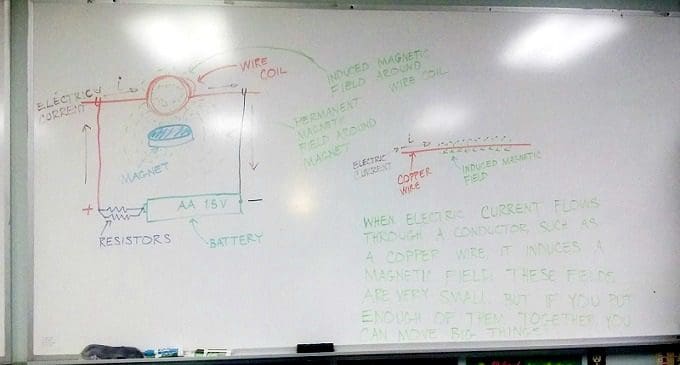 i
WIRE
COIL
INDUCED MAGNETIC
FIELD AROUND
WIRE COIL
ELECTRIC
CURRENT
PERMANENT
MAGNETIC
FIELD AROUND
MAGNET
MAGNET
+
AA 1.5V
−
RESISTORS
BATTERY
i
ELECTRIC
CURRENT
COPPER
WIRE
INDUCED MAGNETIC
FIELD
WHEN ELECTRIC CURRENT FLOWS
THROUGH A CONDUCTOR, SUCH AS
A COPPER WIRE, IT INDUCES A
MAGNETIC FIELD. THESE FIELDS
ARE VERY SMALL BUT IF YOU PUT
ENOUGH OF THEM TOGETHER YOU
CAN MOVE BIG THINGS!